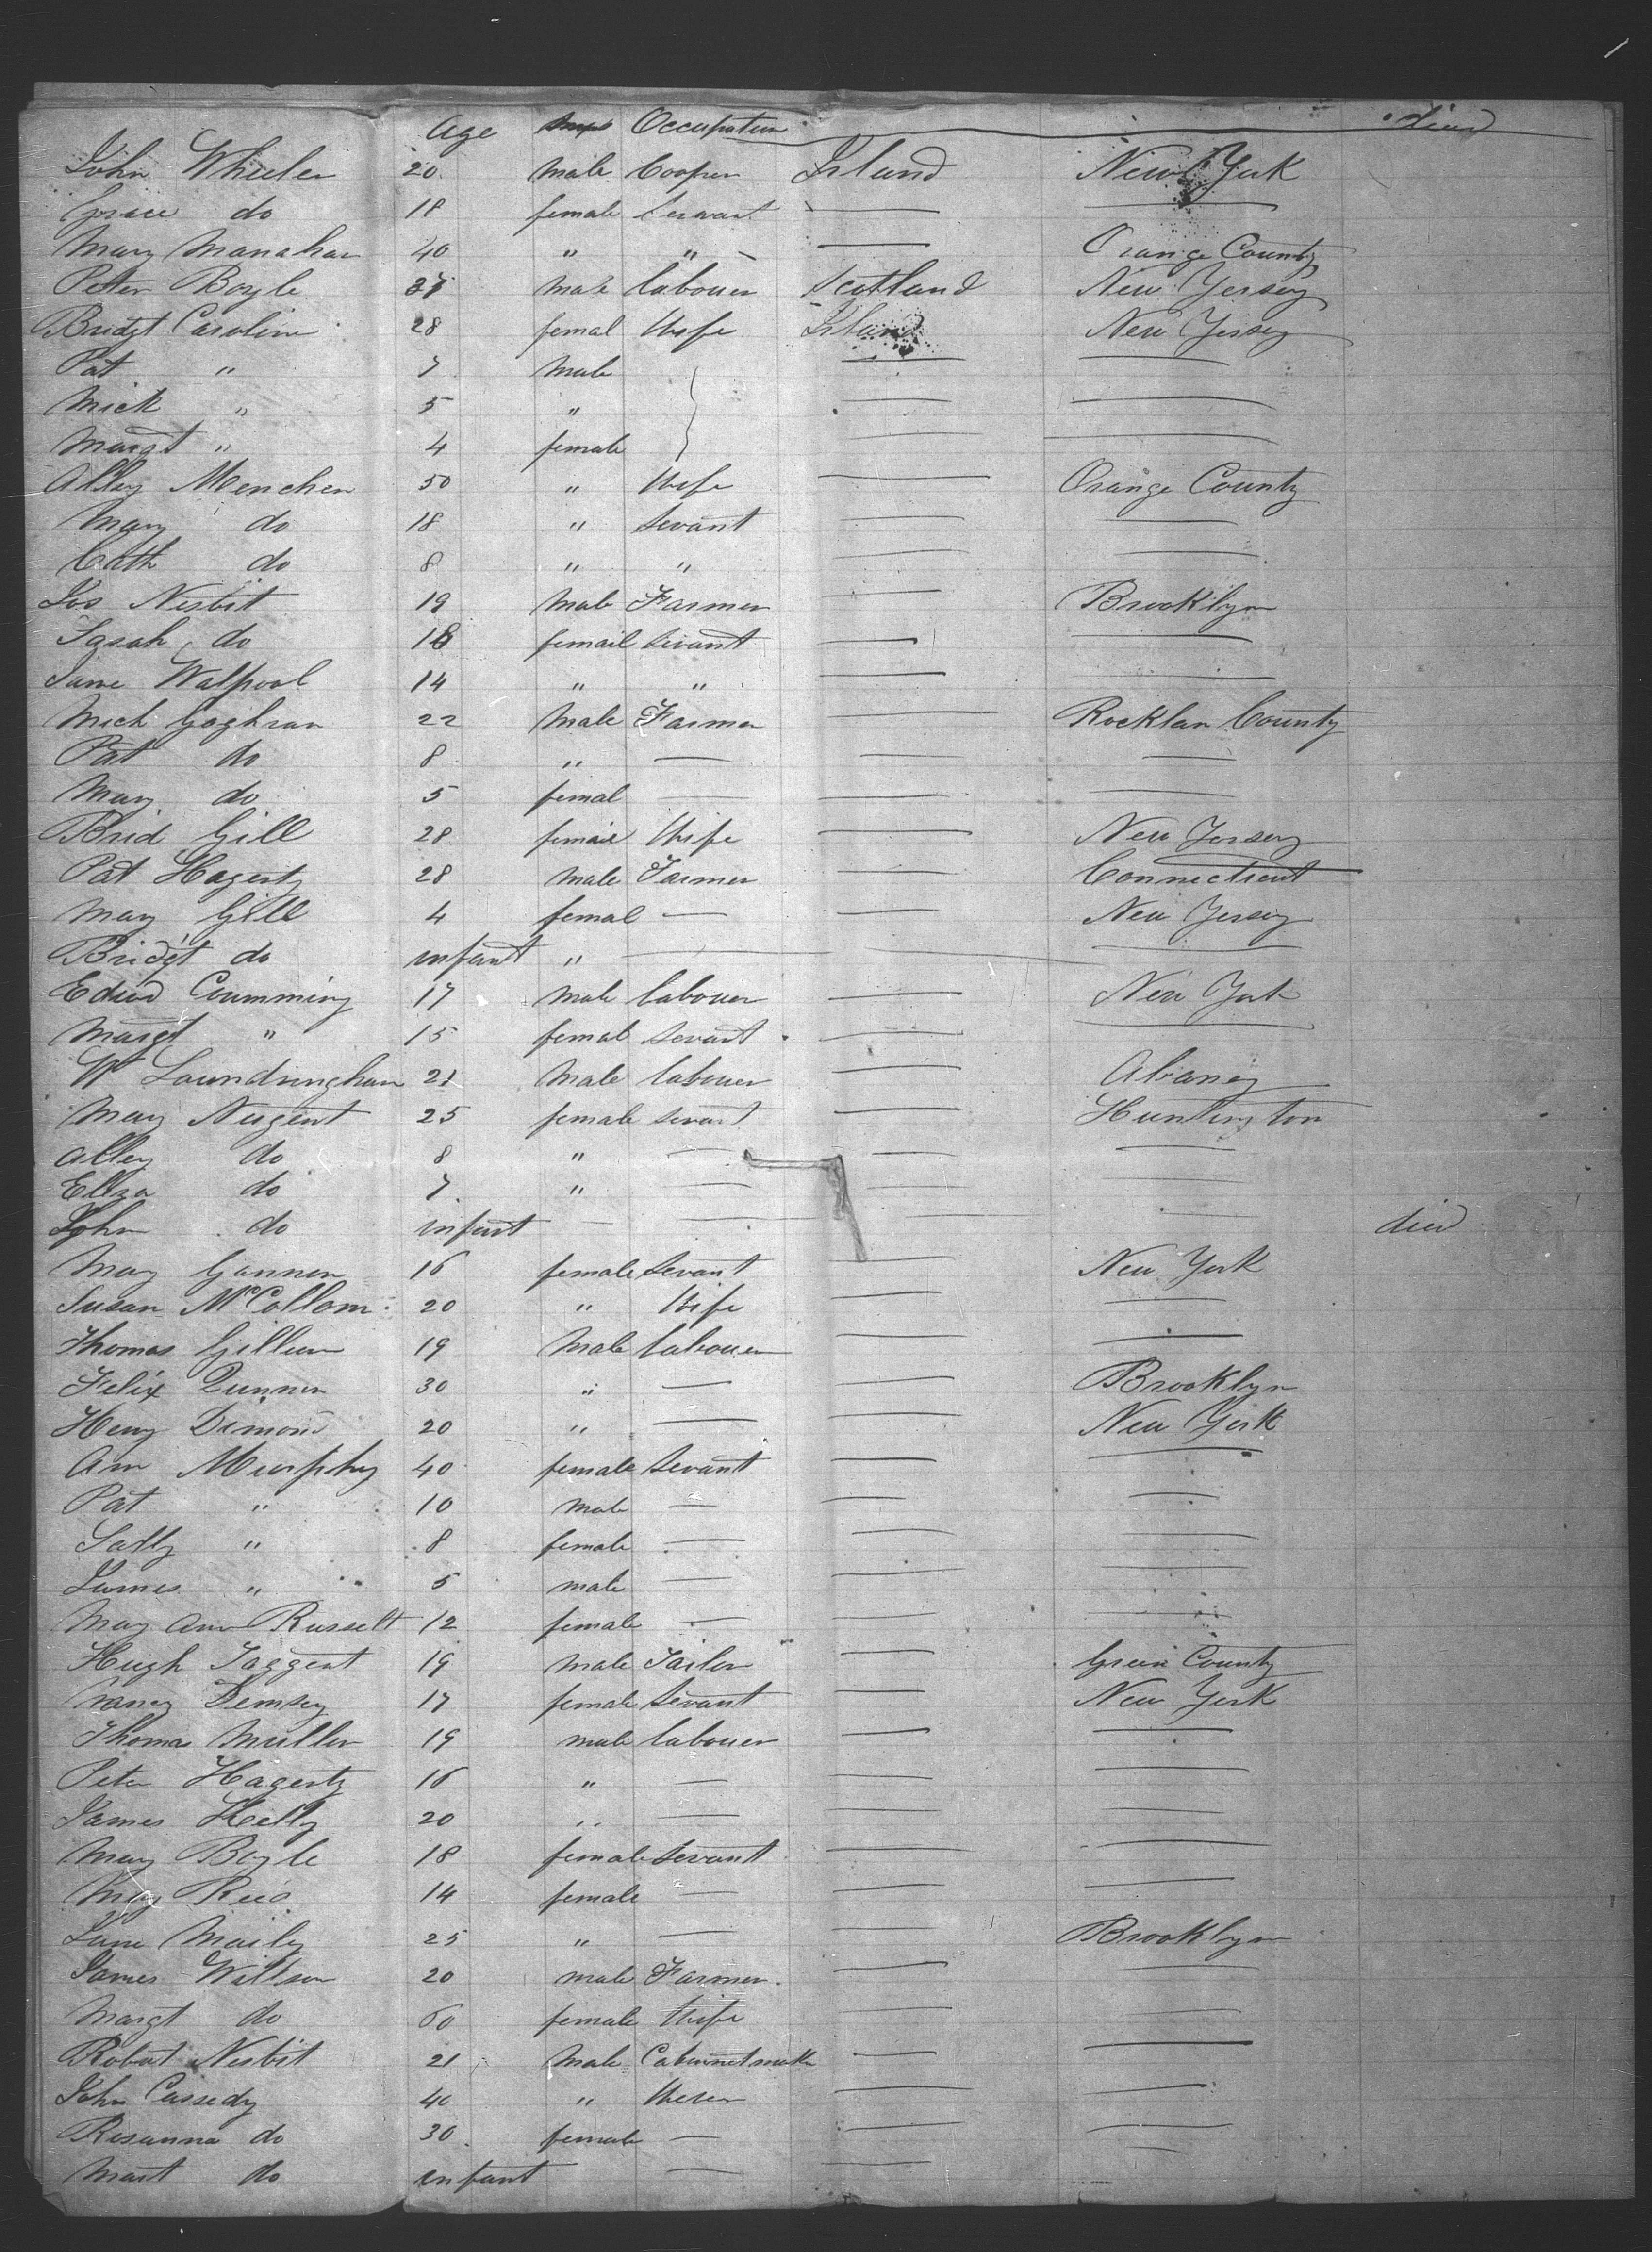 Age Occupation died
John Wheeler 20 male Cooper Irland New York
Grace do 18 female Servant — —
Mary Manahan 40 " " — Orange County
Peter Boyle male labouer Scotland New Jersey
Bridgt Carolin 28 femal Wife Irland New Jersey
Pat " 7 male — —
Mick " 5 " — —
Margt " 4 female — —
Alley Menchen 50 " Wife — Orange County
Mary do 18 " Sevant — —
Cath do 8 " " — —
Jos Nesbit 19 Male Farmer — Brooklyn
Sarah do 18 femail Sevant — —
Jane Walpool 14 " " — —
Mich Goghran 22 Male Farmer — Rocklan County
Pat do 8 " — — —
Mary do 5 femal — — —
Brid Gill 28 femail Wife — New Jersey
Pat Hagerty 28 male Farmer — Connecticut
Mary Gill 4 femal — — New Jersey
Bridgt do infant " — — —
Edwd Cumming 17 male labouer — New York
Margt " 15 femal Sevant — —
Wm 21 Male labouer — Albaney
Mary Nugent 25 female Sevant — Huntington
Alley do 8 " — — —
Eliza do 7 " — — —
John do infant — — — — died
Mary Gannon 16 female Sevant — New York
Susan McCollom 20 " Wife — —
Thomas Gillum 19 Male labouer — —
Felix Quinnen 30 " — — Brooklyn
Henry Dimond 20 " — — New York
Ann Murphy 40 female Sevant — —
Pat " 10 male — — —
Sally " 8 female — — —
James " 5 male — — —
Mary Ann Russell 12 female — — —
Hugh Taggert 19 male Tailor — Green County
Nancy Demsey 17 female Sevant — New York
Thomas Mullen 19 male labouer — —
Peter Hagerty 16 " — — —
James Kelly 20 " — — —
Mary Boyle 18 female Sevant — —
Mary Reid 14 female — — —
Jane Maily 25 " — — Brooklyn
James Willson 20 male Farmer — —
Margt do 60 female Wife — —
Robert Nesbit 21 Male Cabinnetmaker — —
John Cassedy 40 " — —
Rosanna do 30 female — — —
do infant — — —